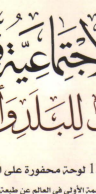 لاجتماعية
للبلد وأ
1 لوحة محفورة على (
مة الأولى في العالم عن طبعة